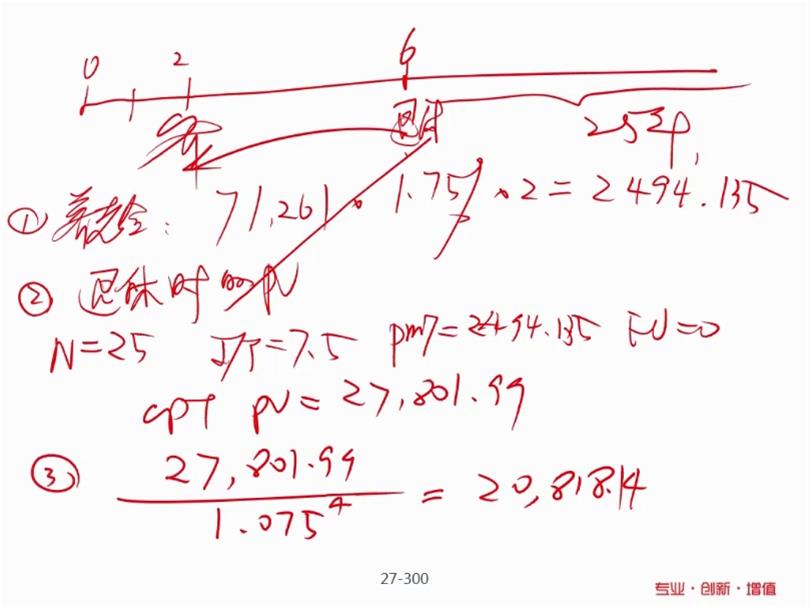 0 2 6
退休 25年
① 养老金: 71,261 · 1.75% · 2 = 2494.135
② 退休时的PV
N=25 I/Y=7.5 PMT=2494.135 FV=0
CPT PV=27,801.99
③ 27,801.99
1.075⁴ = 20,818.14
27-300
专业·创新·增值